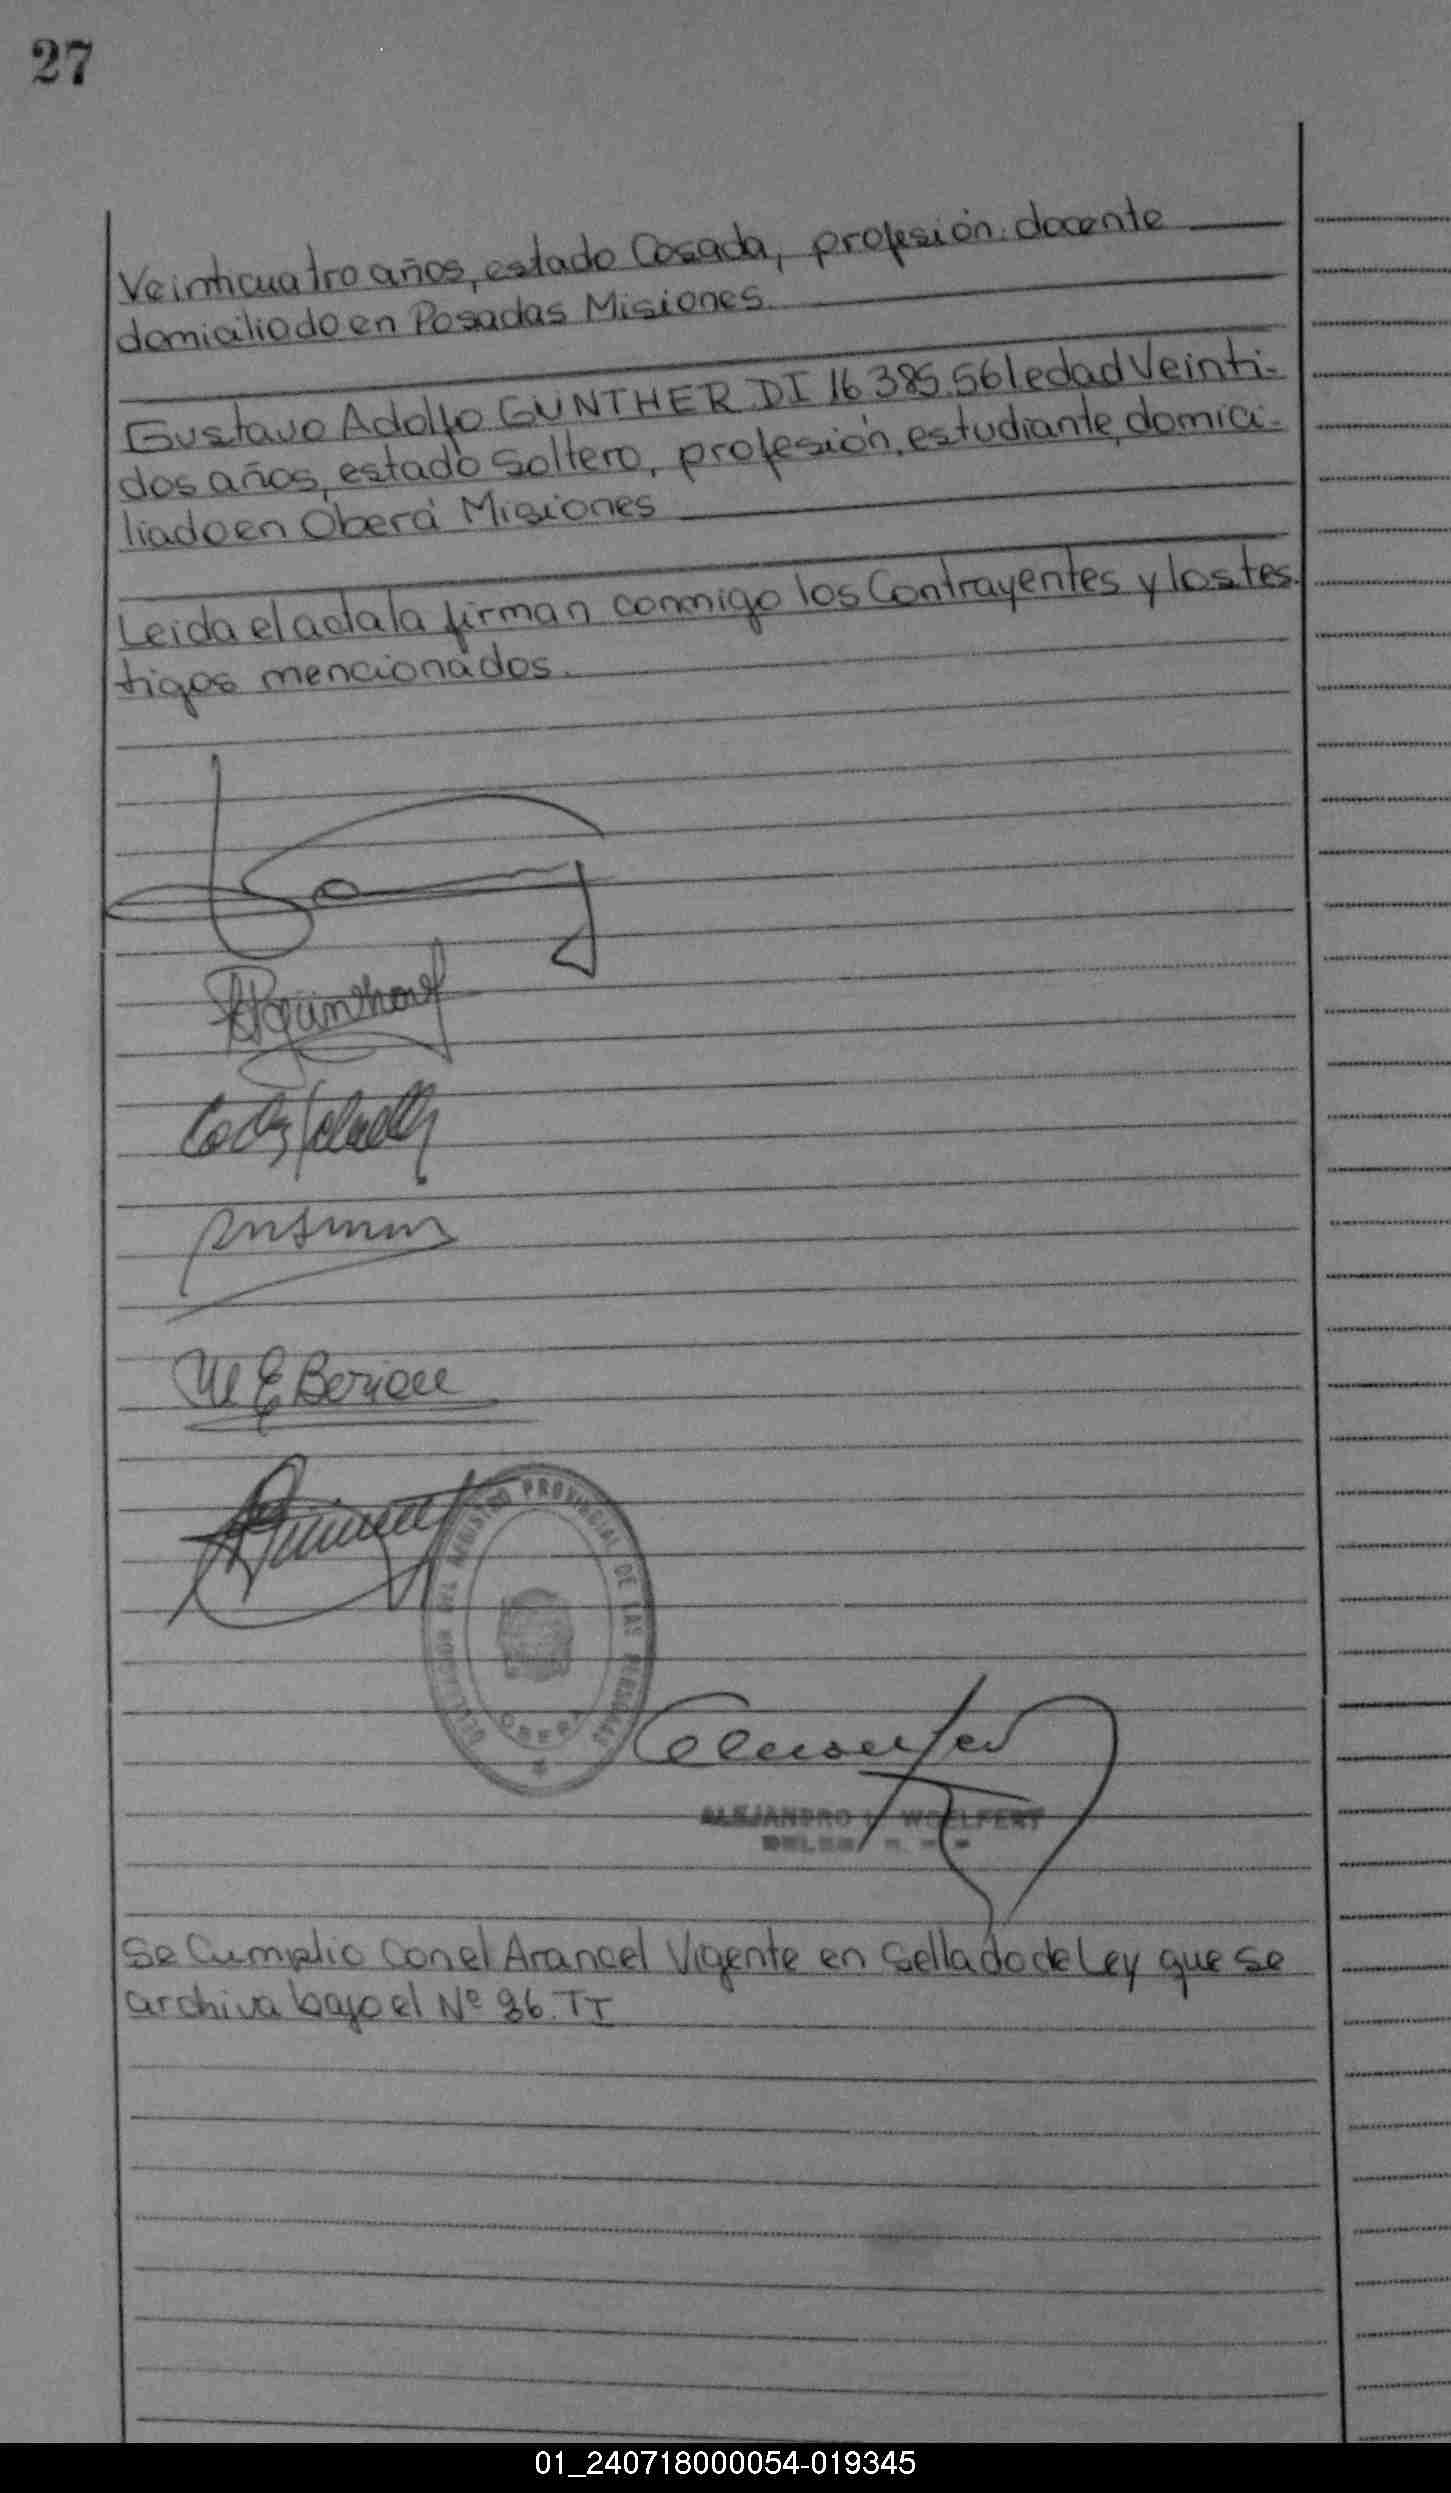 27
Veinticuatro años, estado Casada, profesión: docente
domiciliado en Posadas Misiones.
Gustavo Adolfo GUNTHER DI 16.385.561 edad Veinti-
dos años, estado Soltero, profesión, estudiante, domici-
liado en Oberá Misiones
Leida el acta la firman conmigo los Contrayentes y los tes-
tigos mencionados.
M E Beriau
REGISTRO PROVINCIAL DE LAS PERSONAS
OBERA
ALEJANDRO WOELFERT
Se Cumplio con el Arancel Vigente en Sellado de Ley que se
archiva bajo el Nº 36. TI
01_240718000054-019345